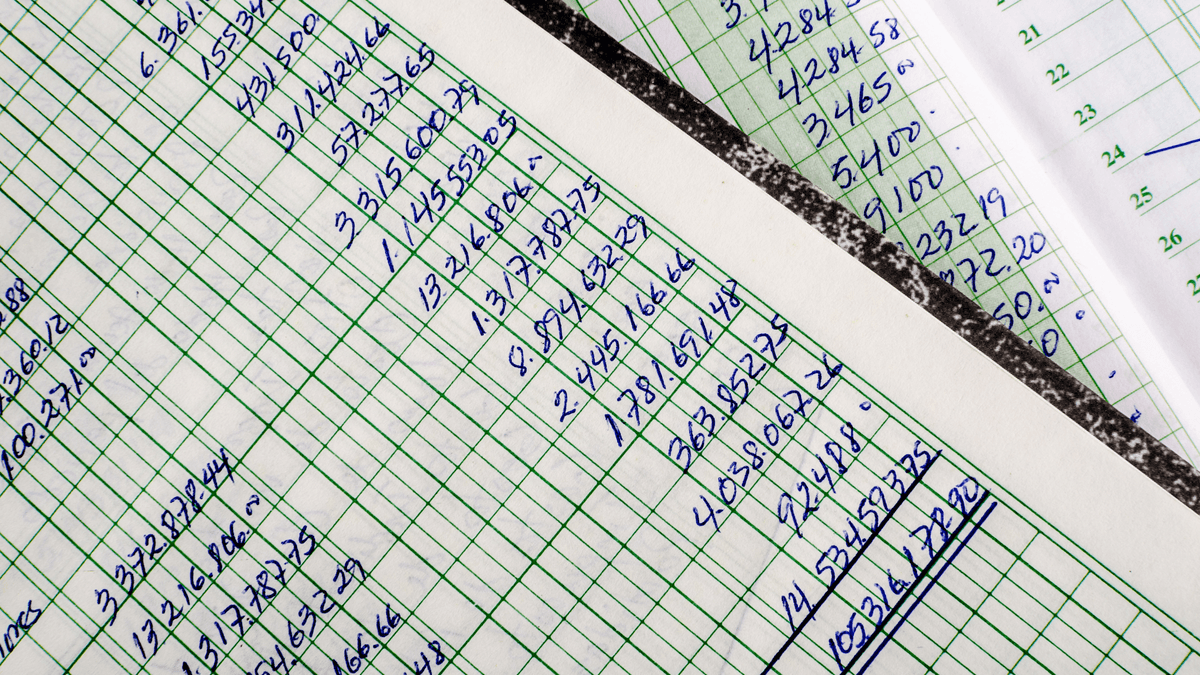 155.34
431 500.
311.424.66
57.277.65
3 315.600.79
1.145 553 05
13 216.806.~
1.317.787.75
8.894.632.29
2.445.166.66
1781.691.48
363.852 75
4.038.067.26
92.488
14 534.593 75
105,316,178.90
288
.360.12
100.271.00
3 372.878.44
13 216.806.~
1.317.787.75
54.632 29
166.66
.48
4284.5
4284.58
3.465 ~
5.400.
9100
232 19
972.20
50.~
21
22
23
24
25
26